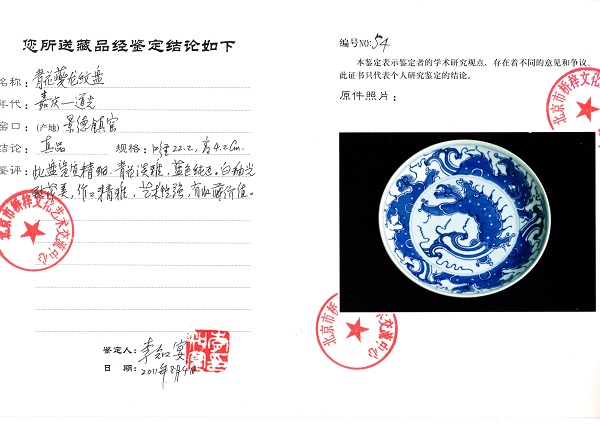 您所送藏品经鉴定结论如下
名称：青花夔龙纹盘
年代：嘉庆一道光
窑口：(产地) 景德镇官
结论：真品 规格：口径22.2，高4.2Cm.
鉴评：此盘瓷质精细.青花淡雅，蓝色纯正，白釉光
作工精雅，艺术性强，有收藏价值。
北京市桥梓文化艺术交流中心
鉴定人：李知宴
日期：2011年8月4日
编号NO：54
本鉴定表示鉴定者的学术研究观点，存在着不同的意见和争议。
此证书只代表个人研究鉴定的结论。
原件照片：
北京市桥梓文化
北京市桥梓 交流中心